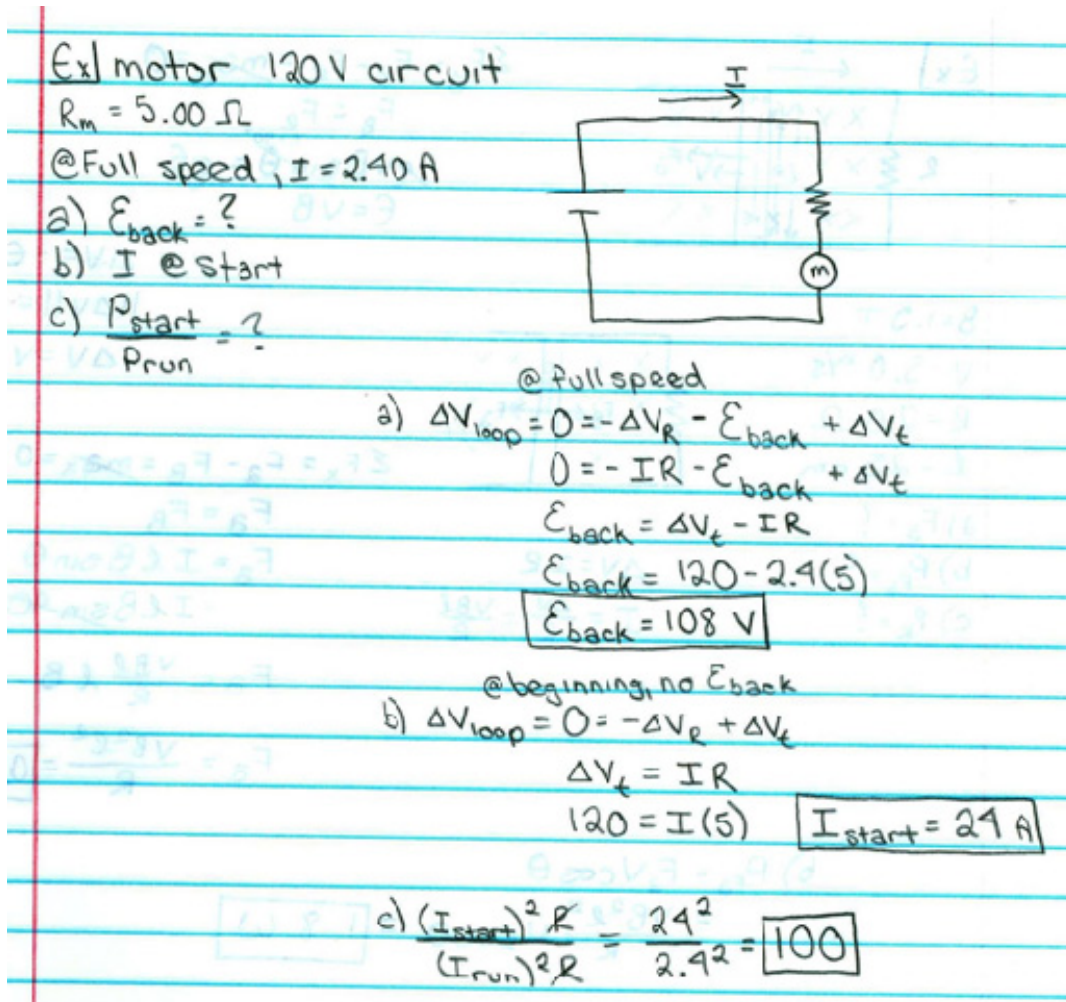 Ex] motor 120V circuit
Rm = 5.00 Ω
@Full speed, I = 2.40 A
a) Ɛback = ?
b) I @ start
c) Pstart / Prun = ?
I
m
@ full speed
a) ΔVloop = 0 = -ΔVR - Ɛback + ΔVt
0 = - IR - Ɛback + ΔVt
Ɛback = ΔVt - IR
Ɛback = 120 - 2.4(5)
Ɛback = 108 V
@ beginning, no Ɛback
b) ΔVloop = 0 = -ΔVR + ΔVt
ΔVt = IR
120 = I(5) Istart = 24 A
c) (Istart)² R / (Irun)² R = 24² / 2.4² = 100